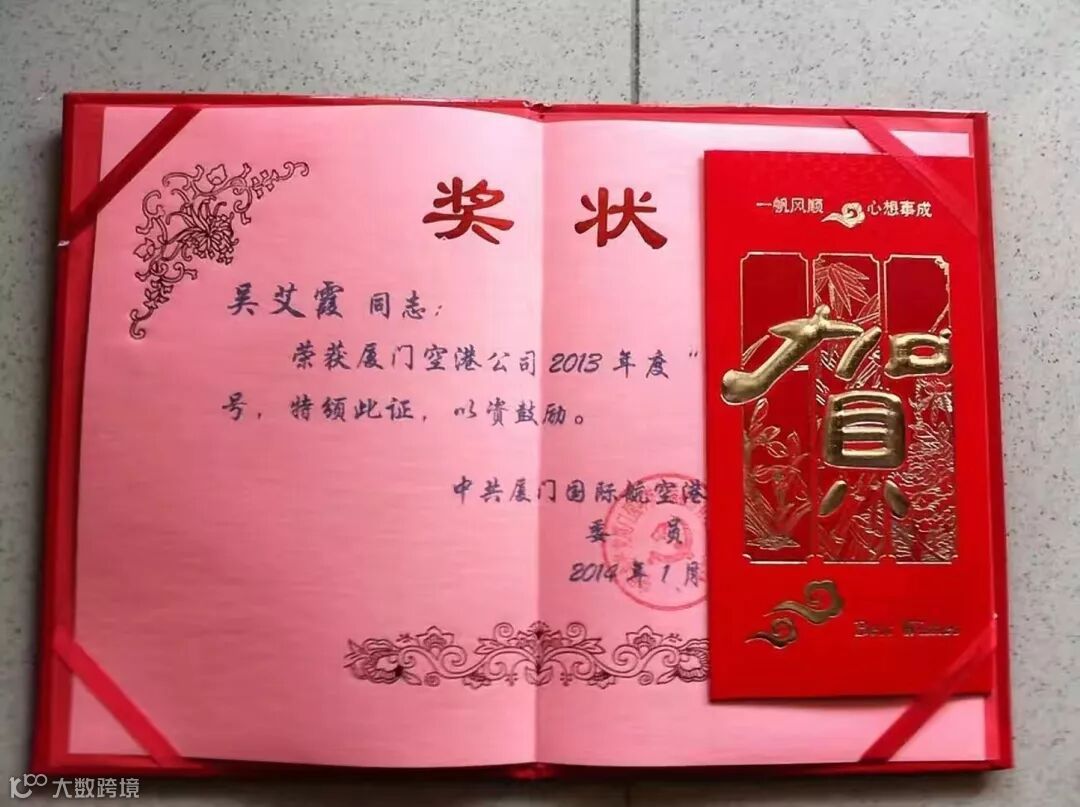 奖状
吴艾霞 同志：
荣获厦门空港公司2013年度“
号，特颁此证，以资鼓励。
中共厦门国际航空港
委 员
2014年1月
一帆风顺 心想事成
贺
Best Wishes
大数跨境